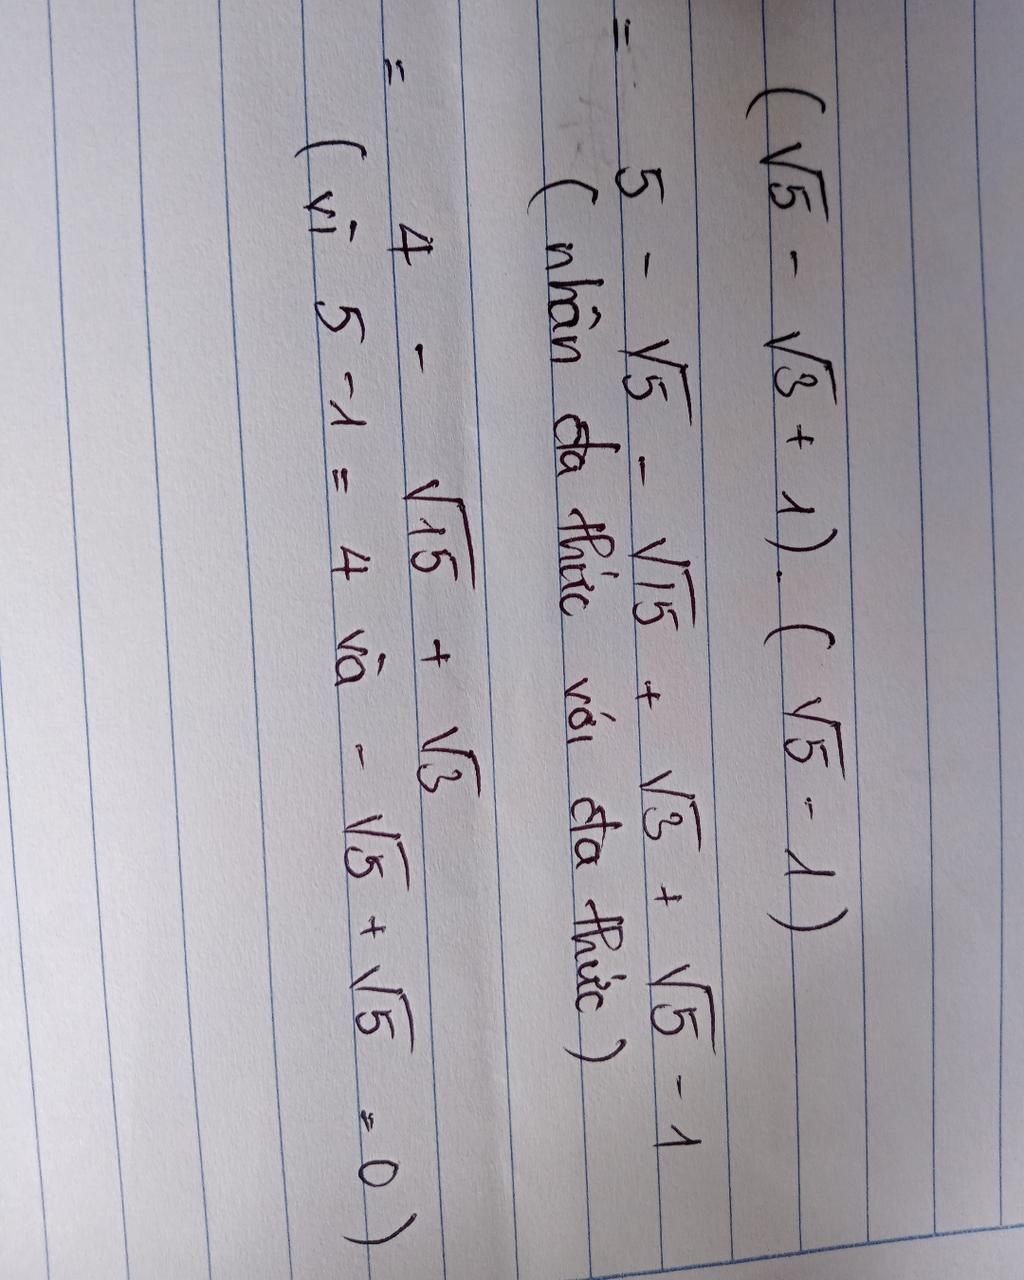 (√5 - √3 + 1).(√5 - 1)
= 5 - √5 - √15 + √3 + √5 - 1
(nhân đa thức với đa thức)
= 4 - √15 + √3
(vì 5 - 1 = 4 và - √5 + √5 = 0)